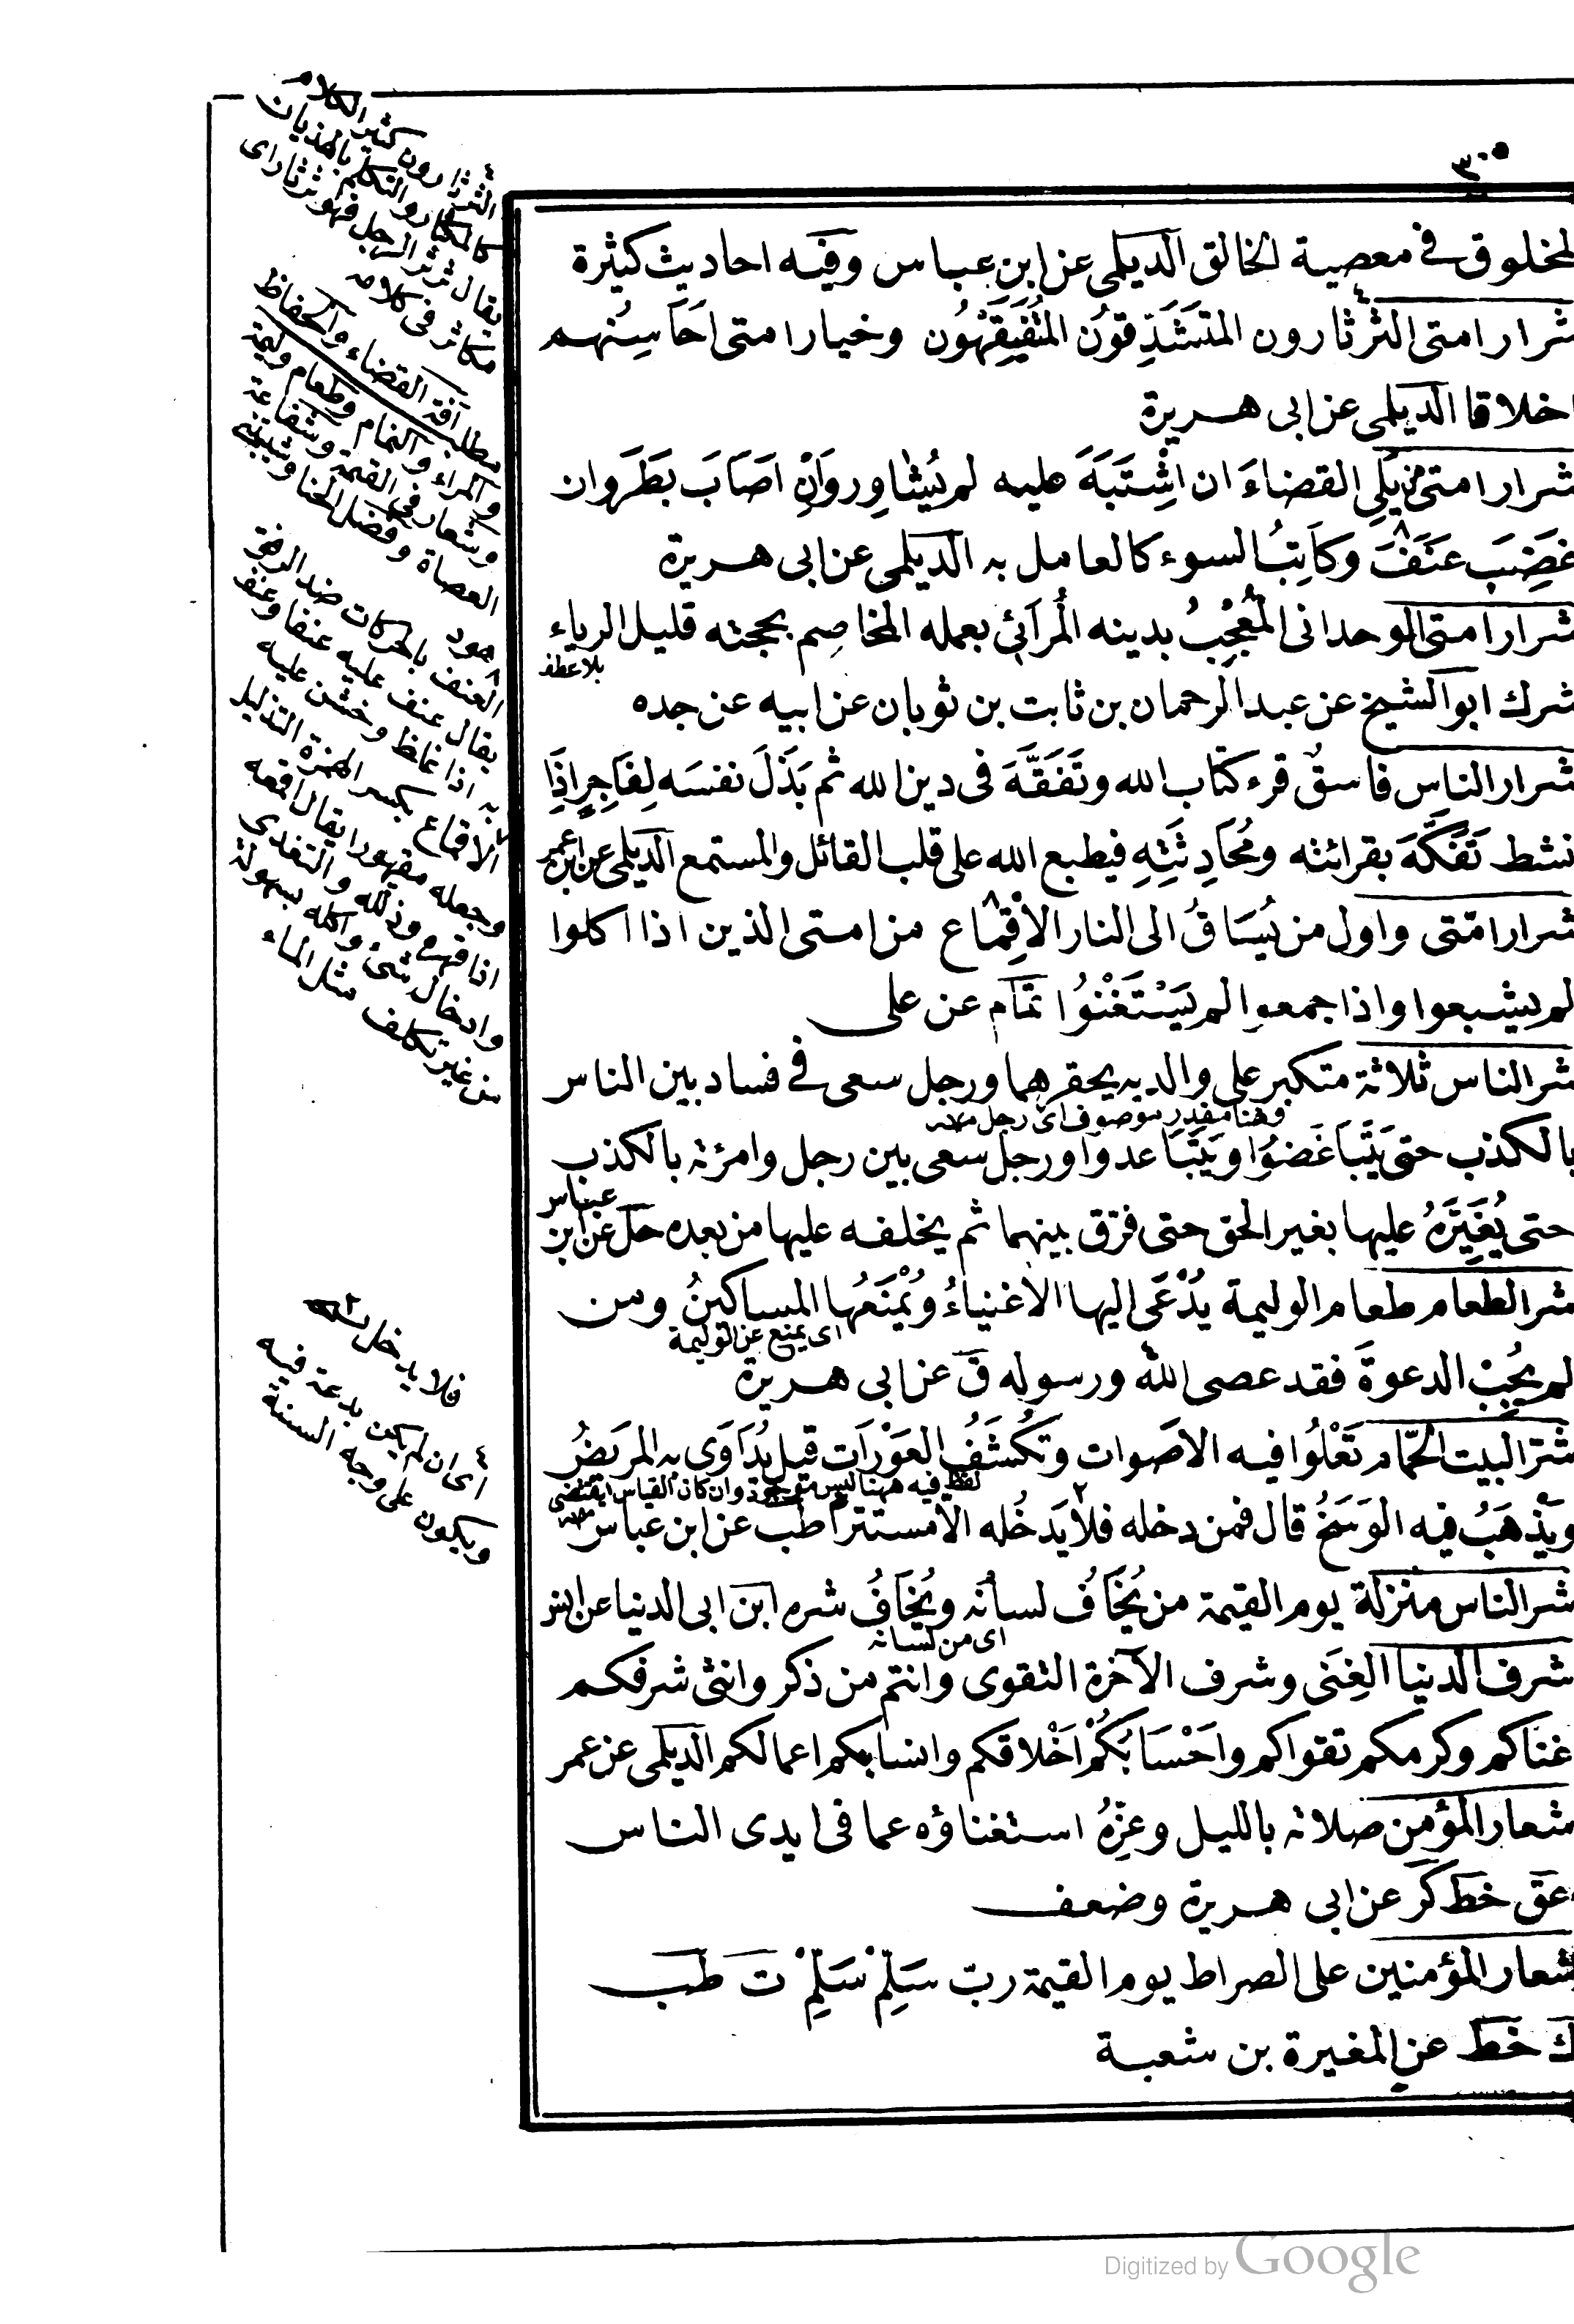 ٣٠٥
لمخلوق فى معصية الخالق الديلمى عن ابن عباس وفيه احاديث كثيرة
شرار امتى الثرثارون المتَشَدِّقُون المُتَفَيْقِهُون وخيار امتى اَحَاسِنُهم
اخلاقا الديلمى عن ابى هريرة
شرار امتى من يَلِى القضاءَ ان اشْتَبَهَ عليه لم يُشاوِر وَاِنْ اَصَابَ بَطَرَ وان
غَضِبَ عَنَفَ وكاتِبُ السوء كالعامل به الديلمى عن ابى هريرة
شرار امتى الوحدانى المُعْجِبُ بدينه المُرَائى بعمله المخاصِم بحجته قليل الرياء
بلا عطف
شرك ابو الشيخ عن عبد الرحمان بن ثابت بن ثوبان عن ابيه عن جده
شرار الناس فاسقٌ قرء كتاب الله وتَفَقَّهَ فى دين الله ثم بَذَلَ نفسَه لِفَاجِرٍ اِذَا
نشط تَفَكَّهَ بقرائته ومُحَادِثَتِهِ فيطبع الله على قلب القائل والمستمع الديلمى عن ابن عمر
شرار امّتى واول من يُسَاقُ الى النار الاَقْمِاع من امتى الذين اذا اكلوا
لم يشبعوا واذا جمعوا لم يَسْتَغْنُوا تمّام عن على
شر الناس ثلاثة متكبر على والديه يحقرهما ورجل سعى فى فساد بين الناس
وهنا مقدر موصوف اى رجل منه
بالكذب حتى يَتَباغَضُوا ويَتَباعدوا ورجل سعى بين رجل وامرئة بالكذب
حتى يُغَيِّرَهُ عليها بغير الحق حتى فرّق بينهما ثم يخلفه عليها من بعده حل عن ابن عباس
شر الطعام طعام الوليمة يُدْعَى اليها الاغنياءُ ويُمْنَعُها المساكينُ ومن
اى يمنع عن الوليمة
لم يُجِبْ الدعوةَ فقد عصى الله ورسوله ق عن ابى هريرة
شرّ البيت الحَمّام تَعْلُوا فيه الاَصْوات وتُكْشَفُ العَوْرَات قيل يُدَاوَى به المريضُ
لفظ فيه ههنا ليس موجودة وان كان القياس يقتضى منه
ويَذْهَبُ فيه الوَسَخُ قال فمن دخله فلا يَدخُله الا مستترا طب عن ابن عباس
شر الناس منزلة يوم القيمة من يُخَافُ لسانُه ويُخَافُ شره ابن ابى الدنيا عن انس
اى من لسانه
شرف الدنيا الغِنَى وشرف الآخرة التقوى وانتم من ذكر وانثى شرفكم
غناكم وكرمكم تقواكم واَحْسَابُكُمْ اَخْلاقكم وانسابكم اعمالكم الديلمى عن عمر
شعار المؤمن صلاته بالليل وعِزُّهُ استغناؤه عما فى ايدى الناس
عق خط كر عن ابى هريرة وضعف
شعار المؤمنين على الصراط يوم القيمة ربّ سَلِّمْ سَلِّمْ ت طب
ك خط عن المغيرة بن شعبة
الثرثارون كثير الكلام
كالمكثار والتكلم بالهذيان
يقال ثرثر الرجل فهو ثرثار اى
مكاثر فى كلامه
مطلب آفة القضاء والحفاظ
والمراء والنمام وطعام وليمة
وشعار فى القيمة وشفاعة
العصاة وفضل الحنا
العنف بالحركات ضد الرفق
يقال عنف عليه عنفا وعنف
به اذا غلظ وخشن عليه
الاقماع بكسر الهمزة التذليل
وجعله مقهورا يقال اقمعه
اذا قهره وذلله والتغدى
وادخال شئ واكله بسهولة
من غير تكلف مثل الماء
فلا يدخل
اى ان لم يكن بدعة فيه
ويكون على وجه السنة
Digitized by Google